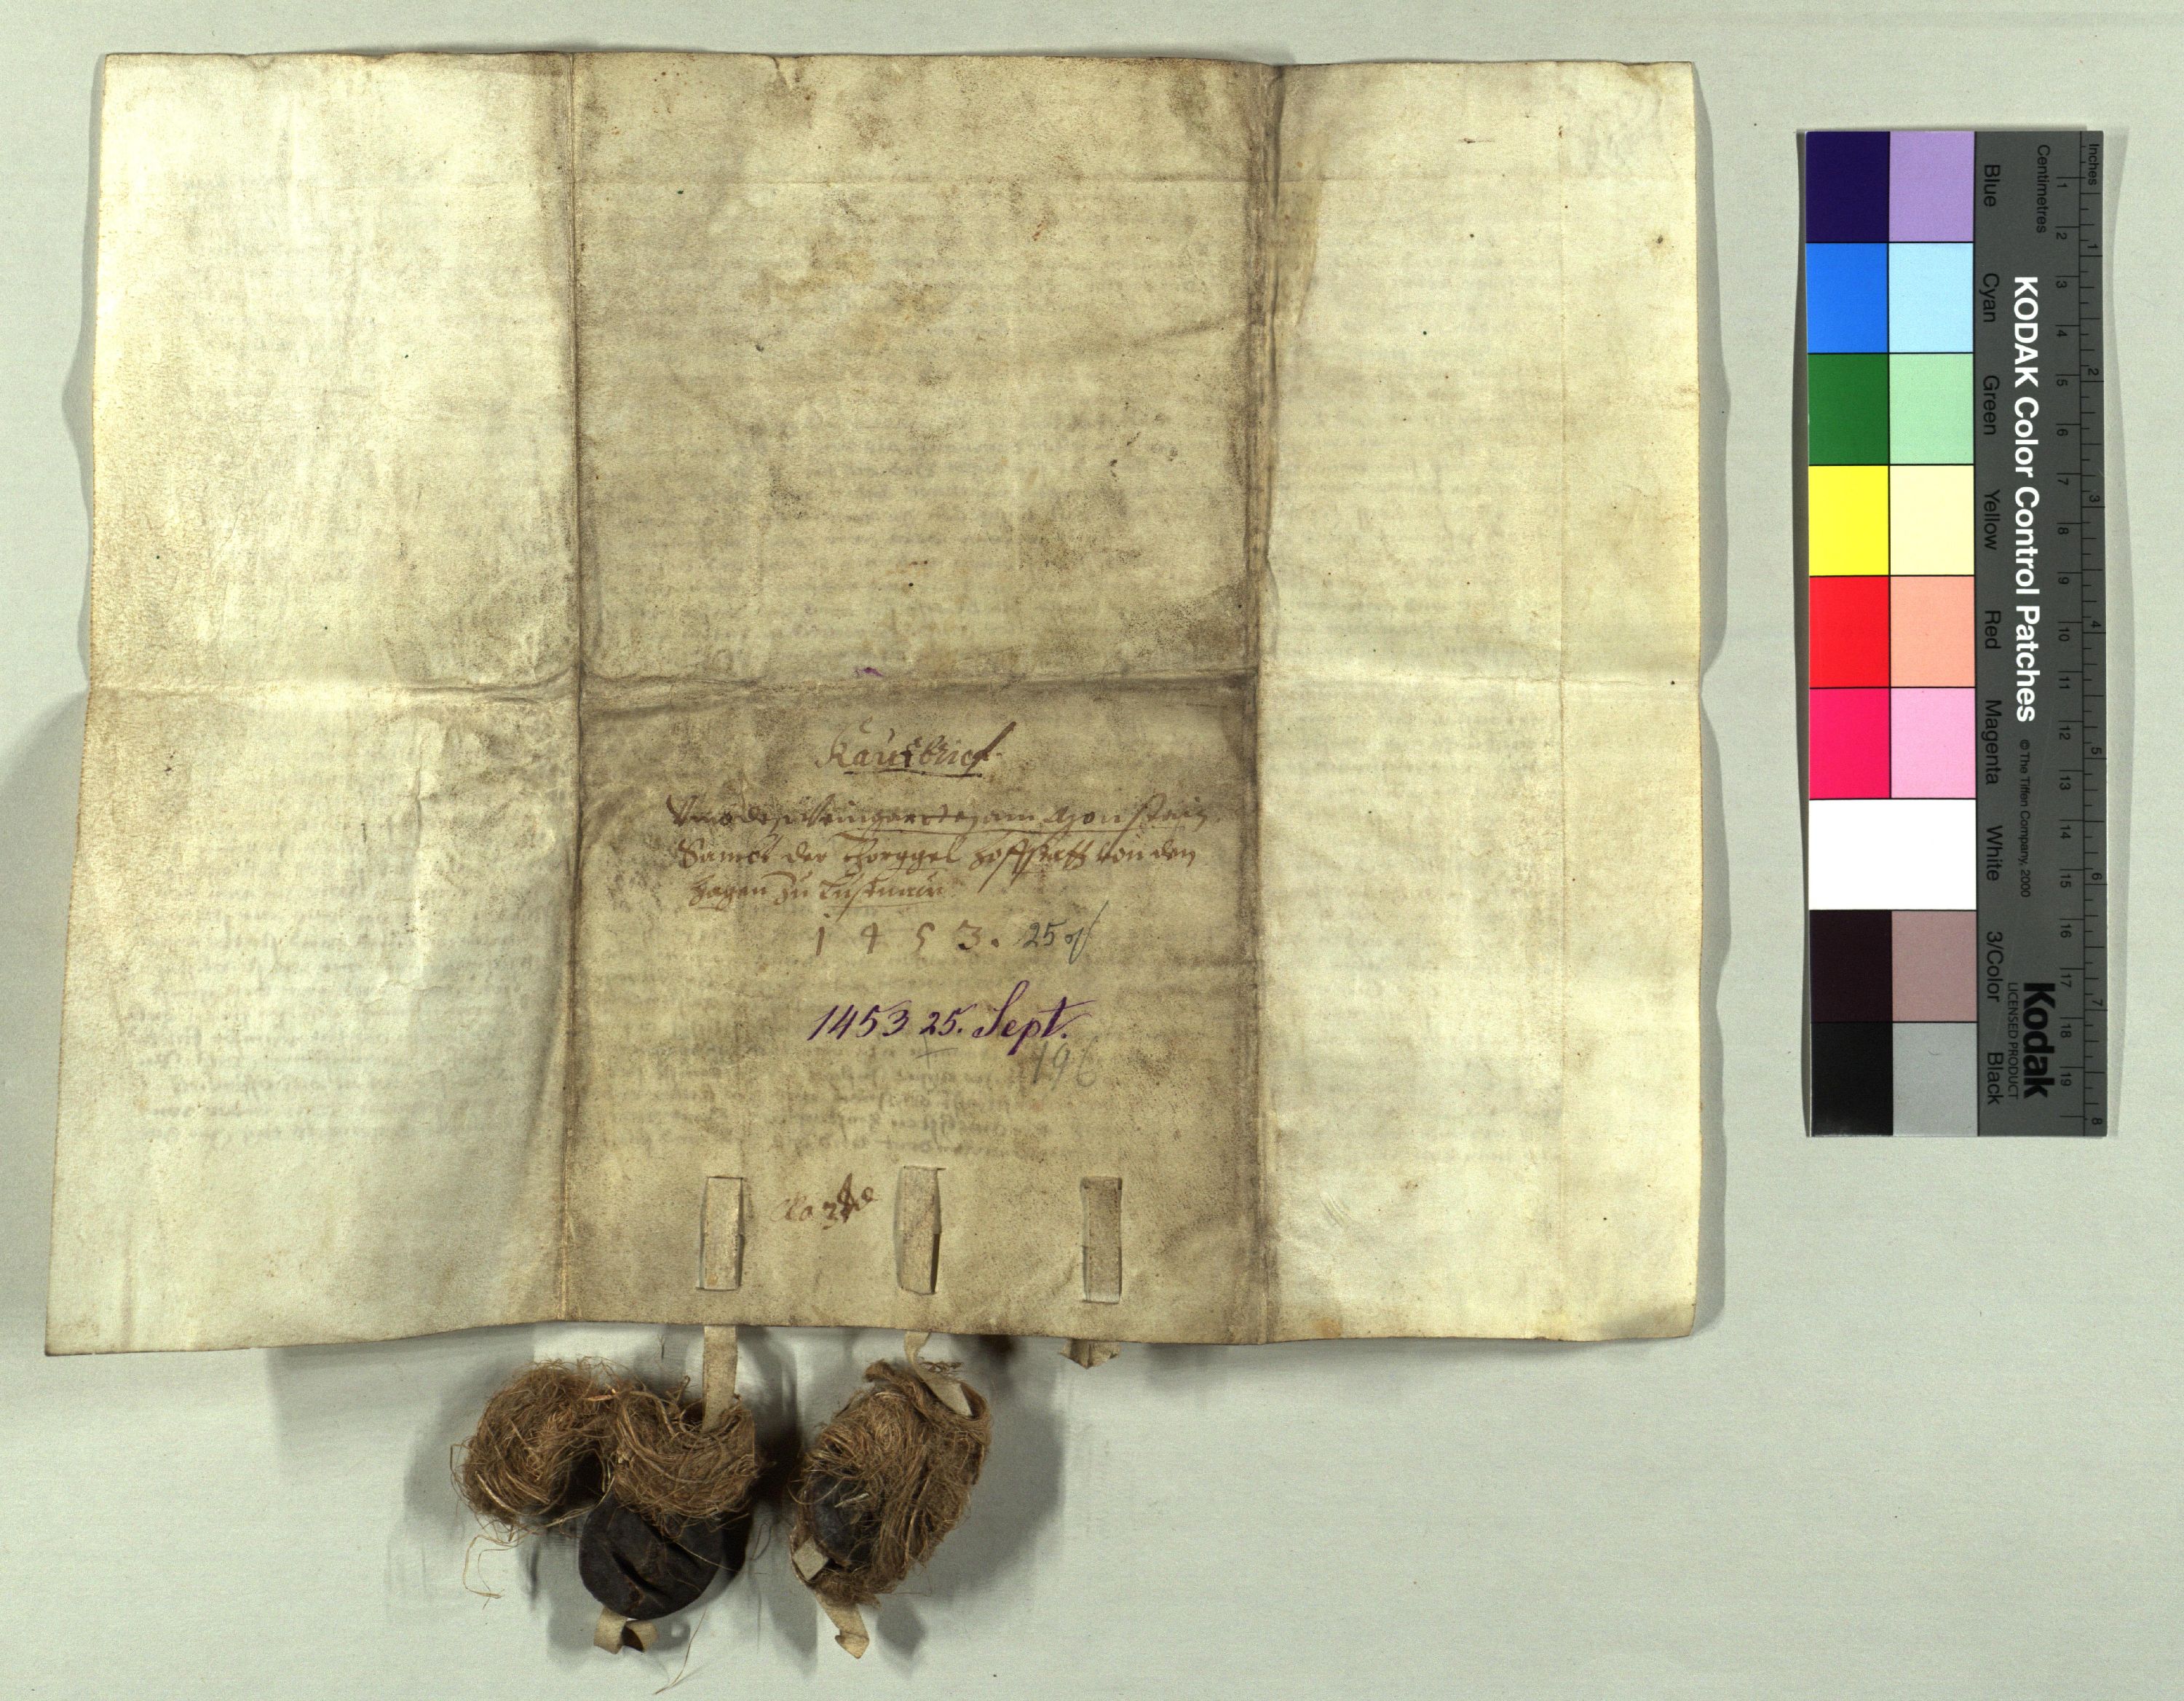 Kauffbrief.
Vmb den Weingartten am Monstein
Sambt der Thorggel hoffstatt von den
hagen zu Lustnaw
1 4 5 3. 25
1453 25. Sept.
196
KODAK Color Control Patches
© The Tiffen Company, 2000
Kodak
LICENSED PRODUCT
Inches
Centimetres
1 2 3 4 5 6 7 8 9 10 11 12 13 14 15 16 17 18 19
1 2 3 4 5 6 7 8
Blue
Cyan
Green
Yellow
Red
Magenta
White
3/Color
Black